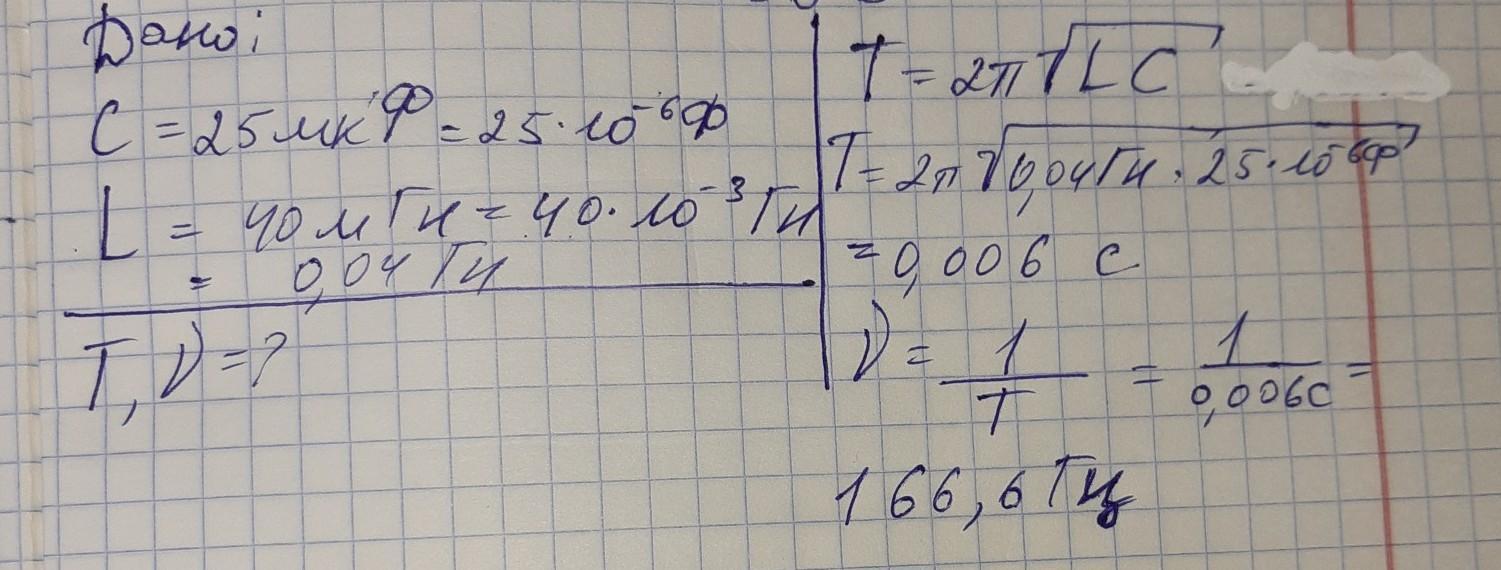 Дано:
C = 25 мкФ = 25·10⁻⁶Ф
L = 40 мГн = 40·10⁻³ Гн
= 0,04 Гн
T, ν = ?
T = 2π√LC
T = 2π√0,04Гн · 25·10⁻⁶Ф
= 0,006 с
ν = 1/T = 1/0,006с =
166,6 Гц